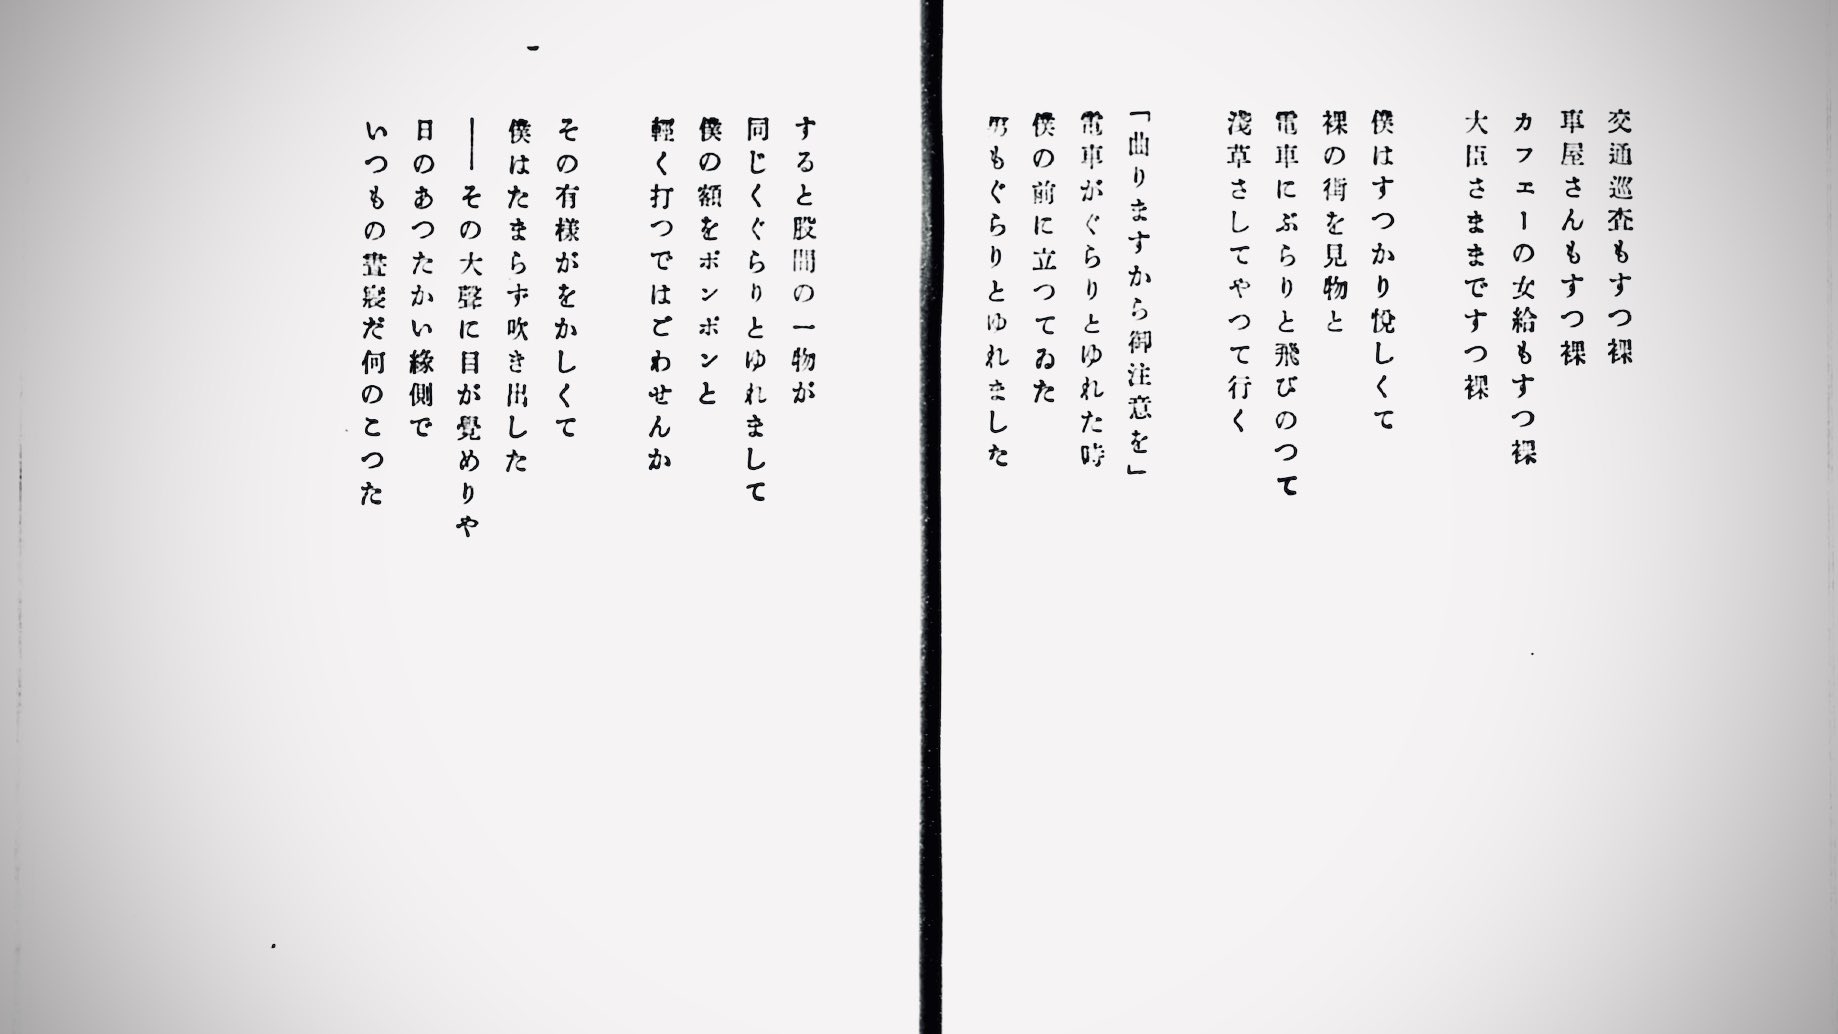 交通巡査もすつ裸
車屋さんもすつ裸
カフェーの女給もすつ裸
大臣さままですつ裸
僕はすつかり悦しくて
裸の街を見物と
電車にぶらりと飛びのつて
淺草さしてやつて行く
「曲りますから御注意を」
電車がぐらりとゆれた時
僕の前に立つてゐた
男もぐらりとゆれました
すると股間の一物が
同じくぐらりとゆれまして
僕の額をポンポンと
輕く打つではごわせんか
その有様がをかしくて
僕はたまらず吹き出した
――その大聲に目が覺めりや
日のあつたかい緣側で
いつもの晝寢だ何のこつた